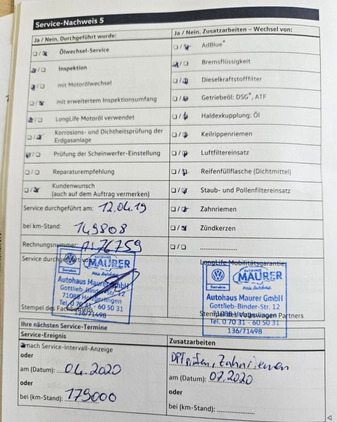 Service-Nachweis 5
Ja / Nein. Durchgeführt wurde:
Ölwechsel-Service
Inspektion
mit Motorölwechsel
mit erweitertem Inspektionsumfang
LongLife Motoröl verwendet
Korrosions- und Dichtheitsprüfung der
Erdgasanlage
Prüfung der Scheinwerfer-Einstellung
Reparaturempfehlung
Kundenwunsch
(auch auf dem Auftrag vermerken)
Service durchgeführt am: 12.04.19
bei km-Stand: 149808
Rechnungsnummer:
Service durchgeführt
Service
MAURER
Autohaus Maurer GmbH
Gottlieb-Binder-Str. 12
71088 Holzgerlingen
Tel. 0 70 31 - 60 50 31
136/71498
Stempel des
Ja / Nein. Zusatzarbeiten – Wechsel von:
AdBlue®
Bremsflüssigkeit
Dieselkraftstofffilter
Getriebeöl: DSG®, ATF
Haldexkupplung: Öl
Keilrippenriemen
Luftfiltereinsatz
Reifenfüllflasche (Dichtmittel)
Staub- und Pollenfiltereinsatz
Zahnriemen
Zündkerzen
LongLife Mobilitätsgarantie
Service
MAURER
Autohaus Maurer GmbH
Gottlieb-Binder-Str. 12
Tel. 0 70 31 - 60 50 31
136/71498
Stempel des Volkswagen Partners
Ihre nächsten Service-Termine
Service-Ereignis
nach Service-Intervall-Anzeige
oder
am (Datum): 04.2020
oder
bei (km-Stand): 179000
Zusatzarbeiten
DPF prüfen, Zahnriemen
am (Datum): 07.2020
oder
bei (km-Stand):